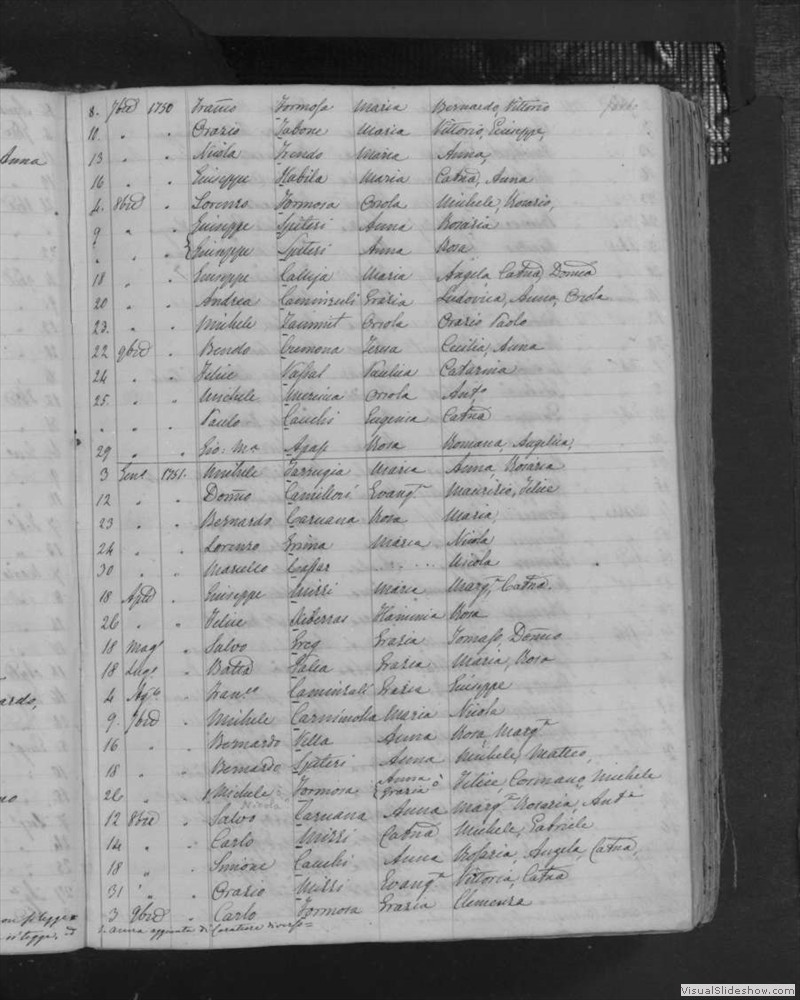 Anna
8. 7bre 1750 Franco Formosa Maria Bernardo, Vittorio
10. " " Orazio Tabone Maria Vittorio, Giuseppe,
13 " " Nicola Maria Anna,
16 " " Giuseppe Maria Catna, Anna
4. 8bre " Lorenzo Formosa Orsola Michele, Rosario,
9 " " Giuseppe Spiteri Anna Rosaria
" " " Giuseppe Spiteri Anna Rosa
18 " " Giuseppe Calleja Maria Angela, Catna, Domca
20 " " Andrea Caminzuli Grazia Ludovica, Anna, Orsola
23. " " Michele Tammut Orsola Orazio Paolo
22 9bre " Bendo Cremona Teresa Cecilia, Anna
24 " " Felice Vassal Paulica Catarina
25 " " Michele Orsola Anto
" " " Paulo Cauchi Eugenia Catna
29 " " Gio: Ma Agass Rosa Romana, Angelica,
3 Genn. 1751. Michele Farrugia Maria Anna, Rosaria
12 " " Domco Camilleri Evangta Maurizio, Felice
23 " " Bernardo Caruana Rosa Maria,
24 " " Lorenzo Maria Nicola
30 " " Marcello Cassar . . . . Nicola
18 Aple " Giuseppe Mizzi Maria Margta, Catna.
26 " " Felice Flaminia Rosa
18 Mago " Salvo Grazia Tomaso, Domco
18 Lugo " Batta Galea Grazia Maria, Rosa
4 Agto " Franco Caminzuli Grazia Giuseppe
9. 7bre " Michele Maria Nicola
16 " " Bernardo Villa Anna Rosa, Margta
18 " " Bernardo Spiteri Anna Michele, Matteo,
26 " " Michele Formosa Anna o Grazia Felice, Cosmano, Michele
Nicola
12 8bre " Salvo Caruana Anna Margta, Rosaria, Anto
14 " " Carlo Mizzi Catna Michele, Gabriele
18 " " Simone Cauchi Anna Rosaria, Angela, Catna,
31 " " Orazio Mizzi Evangta Vittoria, Catna
3 9bre " Carlo Formosa Grazia Clemenza
aggiunta di carattere diverso=
VisualSlideshow.com